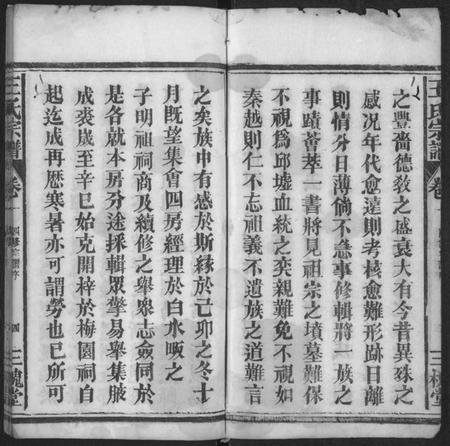 王氏宗譜
卷
三槐堂
之豐嗇德敎之盛衰大有今昔異殊之
感况年代愈遠則考核愈難形跡日離
則情分日薄倘不急事修輯將一族之
事蹟薈萃一書將見祖宗之墳墓難保
不視爲邱墟血統之奕親難免不視如
秦越則仁不忘祖義不遺族之道難言
之矣族中有感於斯緣於己卯之冬十
月既望集會四房經理於白水畈之
子明祖祠商及續修之舉衆志僉同於
是各就本房分途採輯眾擎易舉集腋
成裘歲至辛巳始克開梓於梅園祠自
起迄成再歷寒暑亦可謂勞也已所可
王氏宗譜
卷
四
三槐堂